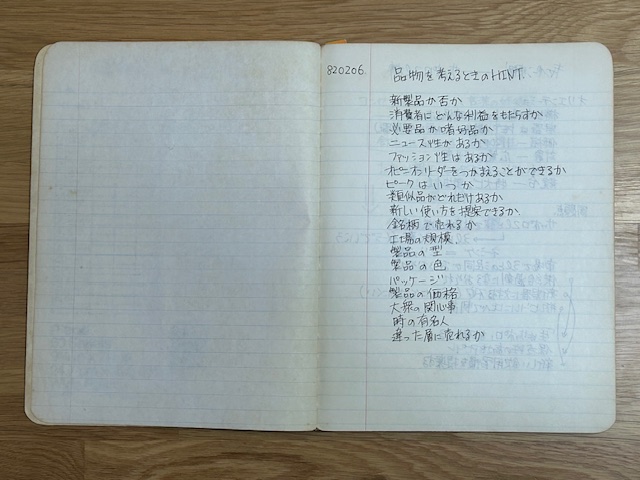 820206.
品物を考えるときのHINT.
新製品か否か
消費者にどんな利益をもたらすか
必要品か嗜好品か
ニュース性があるか
ファッション性はあるか
オピニオンリーダーをつかまえることができるか
ピークはいつか
類似品がどれだけあるか
新しい使い方を提案できるか.
銘柄で売れるか
工場の規模.
製品の型
製品の色
パッケージ
製品の価格
大衆の関心事
時の有名人
違った層に売れるか